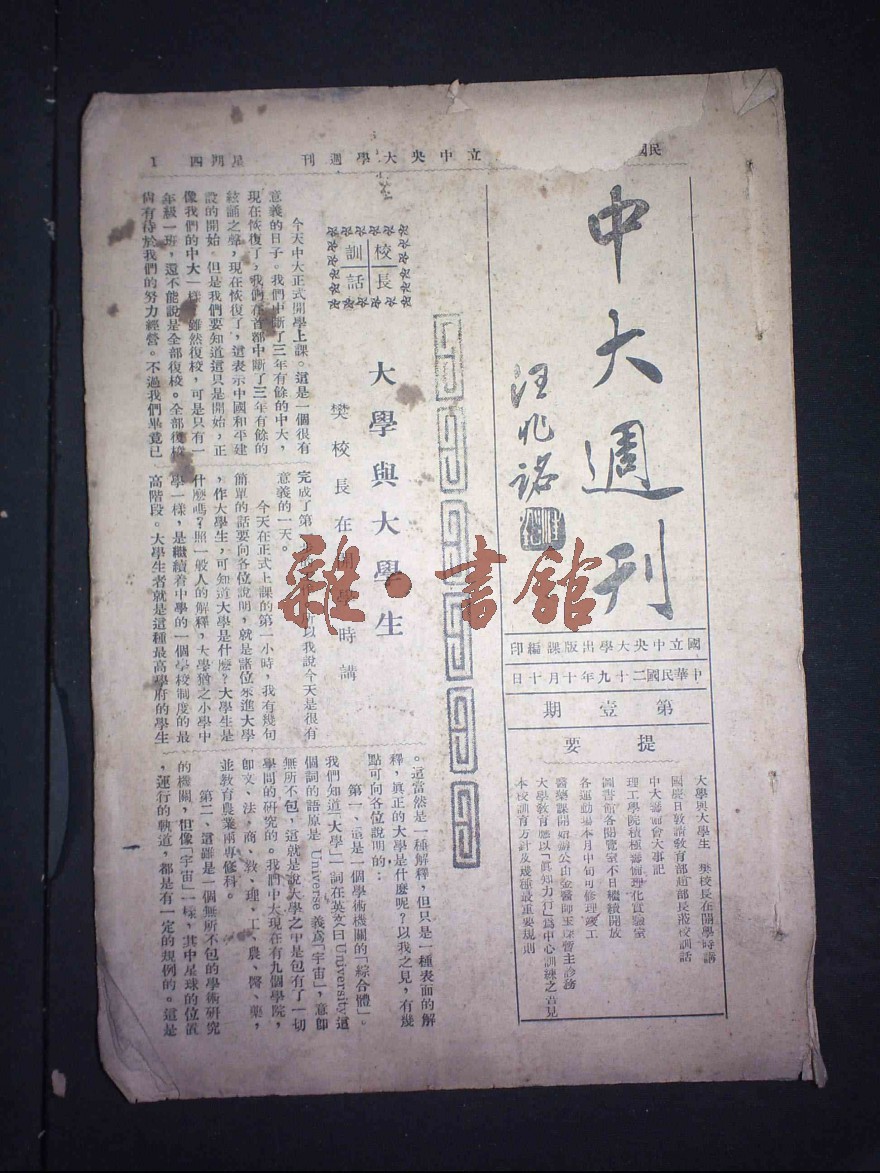 民國
立中央大學週刊
星期四
1
中大週刊
汪兆銘
國立中央大學出版課編印
中華民國二十九年十月十日
第壹期
提要
大學與大學生 樊校長在開學時講
國慶日敦請教育部趙部長蒞校訓話
中大籌備會大事記
理工學院積極籌備理化實驗室
圖書館各閱覽室不日繼續開放
各運動場本月中旬可修理竣工
醫藥課開始辦公由金醫師玉琛暫主診務
大學教育應以「真知力行」為中心訓練之管見
本校訓育方針及幾種最重要規則
校長
訓話
大學與大學生
樊校長在開學時講
今天中大正式開學上課。這是一個很有
意義的日子。我們中斷了三年有餘的中大，
現在恢復了，我們在首都中斷了三年有餘的
絃誦之聲，現在恢復了，這表示中國和平建
設的開始。但是我們要知道這只是開始，正
像我們的中大一樣，雖然復校，可是只有一
年級一班，還不能說是全部復校。全部復校
尚有待於我們的努力經營。不過我們畢竟已
完成了第 所以我說今天是很有
意義的一天。
今天在正式上課的第一小時，我有幾句
簡單的話要向各位說明，就是諸位來進大學
，作大學生，可知道大學是什麼？大學生是
什麼嗎？照一般人的解釋，大學猶之小學中
學一樣，是繼續着中學的一個學校制度的最
高階段。大學生者就是這種最高學府的學生
。這當然是一種解釋，但只是一種表面的解
釋，真正的大學是什麼呢？以我之見，有幾
點可向各位說明的：
第一、這是一個學術機關的「綜合體」。
我們知道「大學」一詞在英文曰University這
個詞的語原是 Universe 義為「宇宙」，意卽
無所不包，這就是說大學之中是包有了一切
學問的研究的。我們中大現在有九個學院，
卽文、法、商、教、理、工、農、醫、藥，
並教育農業兩專修科。
第二、這雖是一個無所不包的學術研究
的機關，但像「宇宙」一樣，其中星球的位置
，運行的軌道，都是有一定的規例的。這是
雜·書館